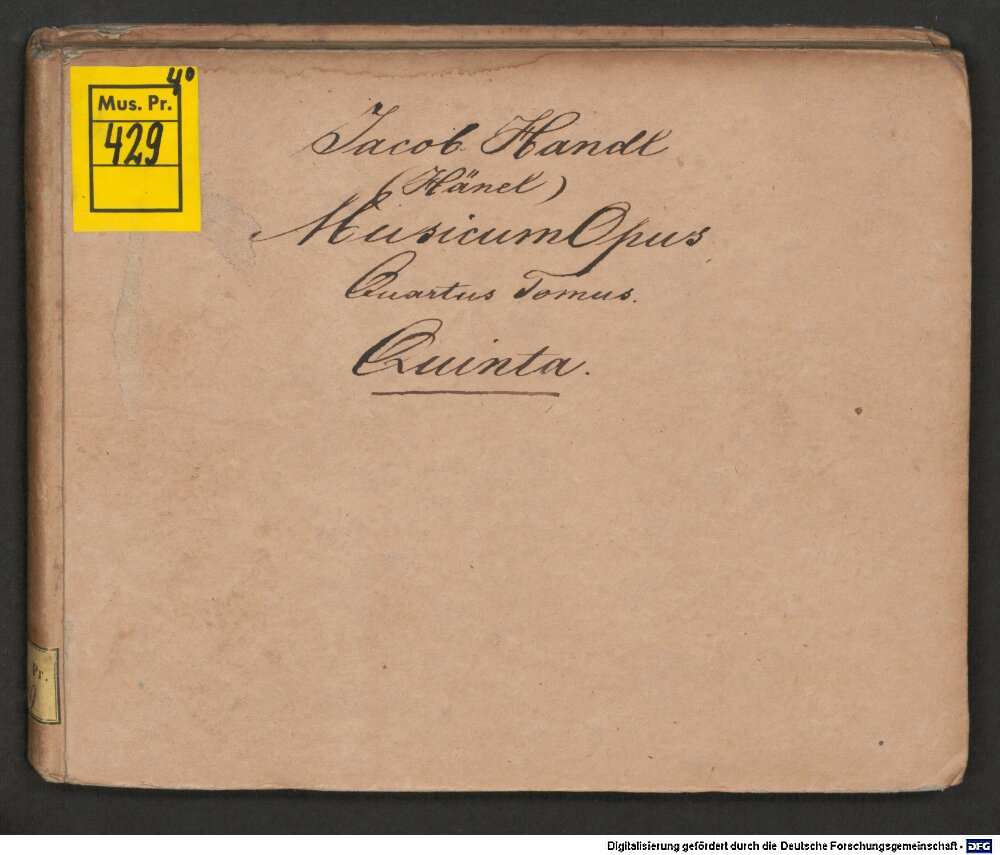 4°
Mus. Pr.
429
Jacob Handl
(Hänel)
Musicum Opus
Quartus Tomus.
Quinta.
Pr.
9
Digitalisierung gefördert durch die Deutsche Forschungsgemeinschaft - DFG